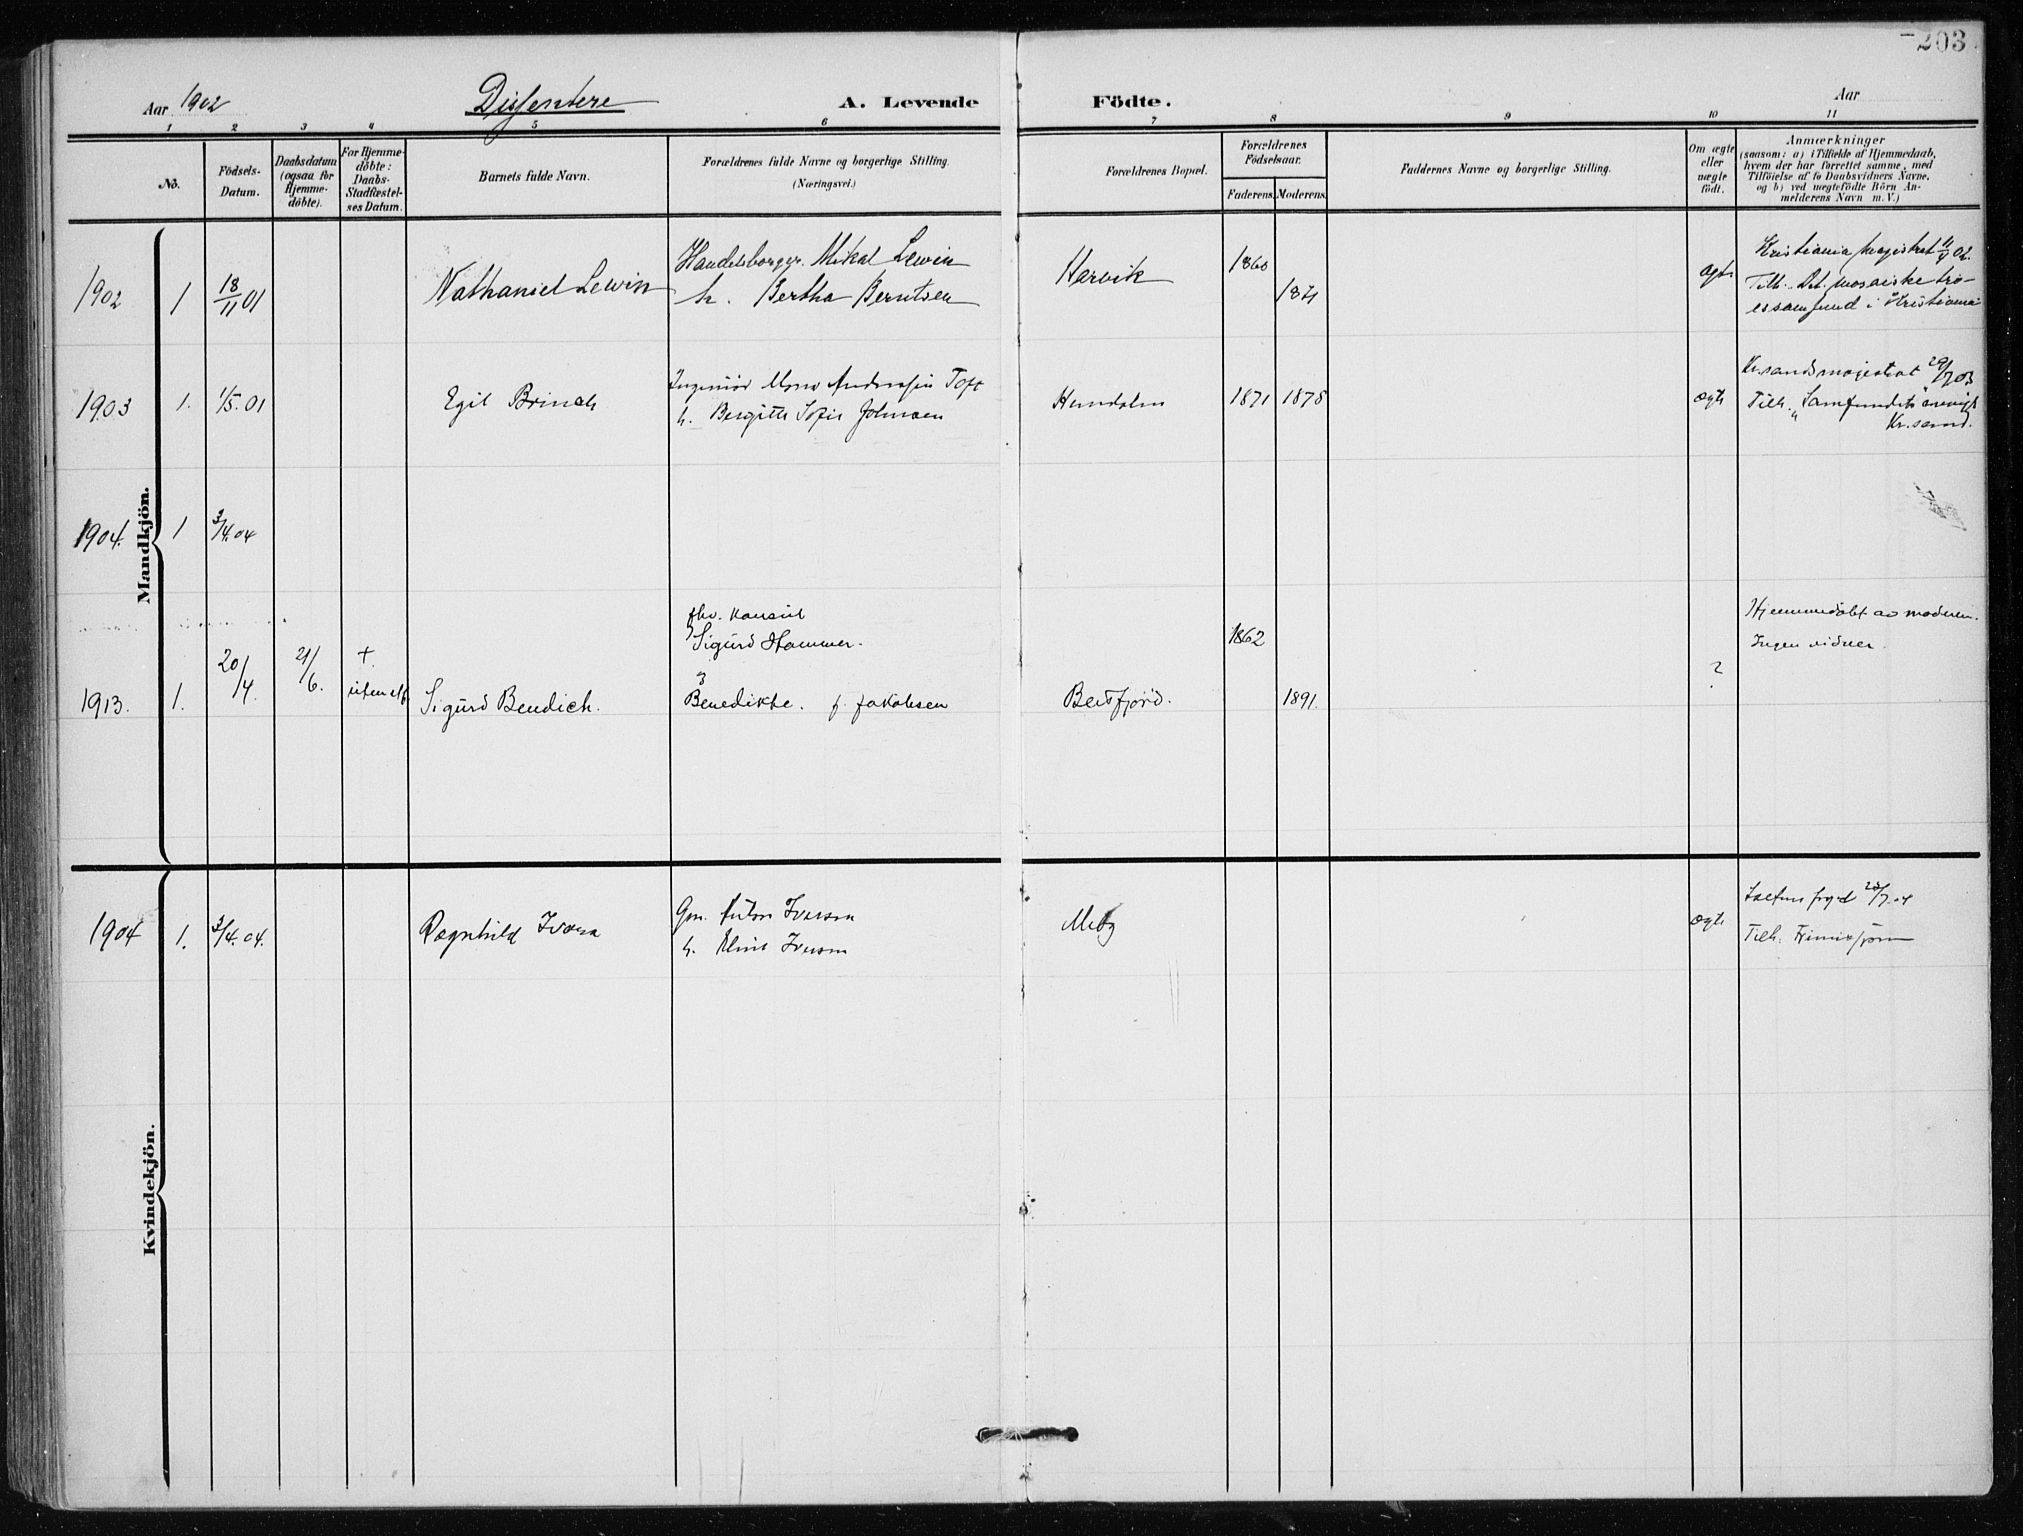 203
Aar 1902
Dissentere
A. Levende
Födte.
Aar
1 2 3 4 5 6 7 8 9 10 11
No.
Födsels-
Datum.
Daabsdatum
(ogsaa for
Hjemme-
döbte).
For Hjemme-
döbte:
Daabs-
Stadfæstel-
ses Datum.
Barnets fulde Navn.
Forældrenes fulde Navne og borgerlige Stilling.
(Næringsvei.)
Forældrenes Bopæl.
Forældrenes
Födselsaar.
Faderens. Moderens.
Faddernes Navne og borgerlige Stilling.
Om ægte
eller
uægte
födt.
Anmærkninger
(saasom: a) i Tilfælde af Hjemmedaab,
hvem der har forrettet samme, med
Tilföielse af to Daabsvidners Navne,
og b) ved uægtefödte Börn An-
melderens Navn m. V.)
Mandkjön.
1902 1 18/11 01 Nathaniel Lewin
Handelsborger Mikal Lewin
h. Bertha Berntsen
Narvik 1860
ægte
Kristiania Magistrat 02.
Tilh. Det mosaiske tro-
essamfund i Kristiania
1903 1. 1/5.01 Egil Brinch
Ingeniör Andersen Toft
h. Bergitte Sofie Johnsen
1871 1878 ægte
Kr.sands magistrat
Tilh. "Samfundet"
Kr.sand.
1904. 1 3/4.04
1913. 1. 20/4. 21/6. + Sigurd Bendich.
fhv. konsul
Sigurd Hammer.
Benedikte. f. Jakobsen
1862
1891.
?
Hjemmedöbt av moderen.
Ingen vidner.
Kvindekjön.
1904 1. 3/4.04. Ragnhild
Iversen
h. Iversen
Meby
ægte
Tilh.